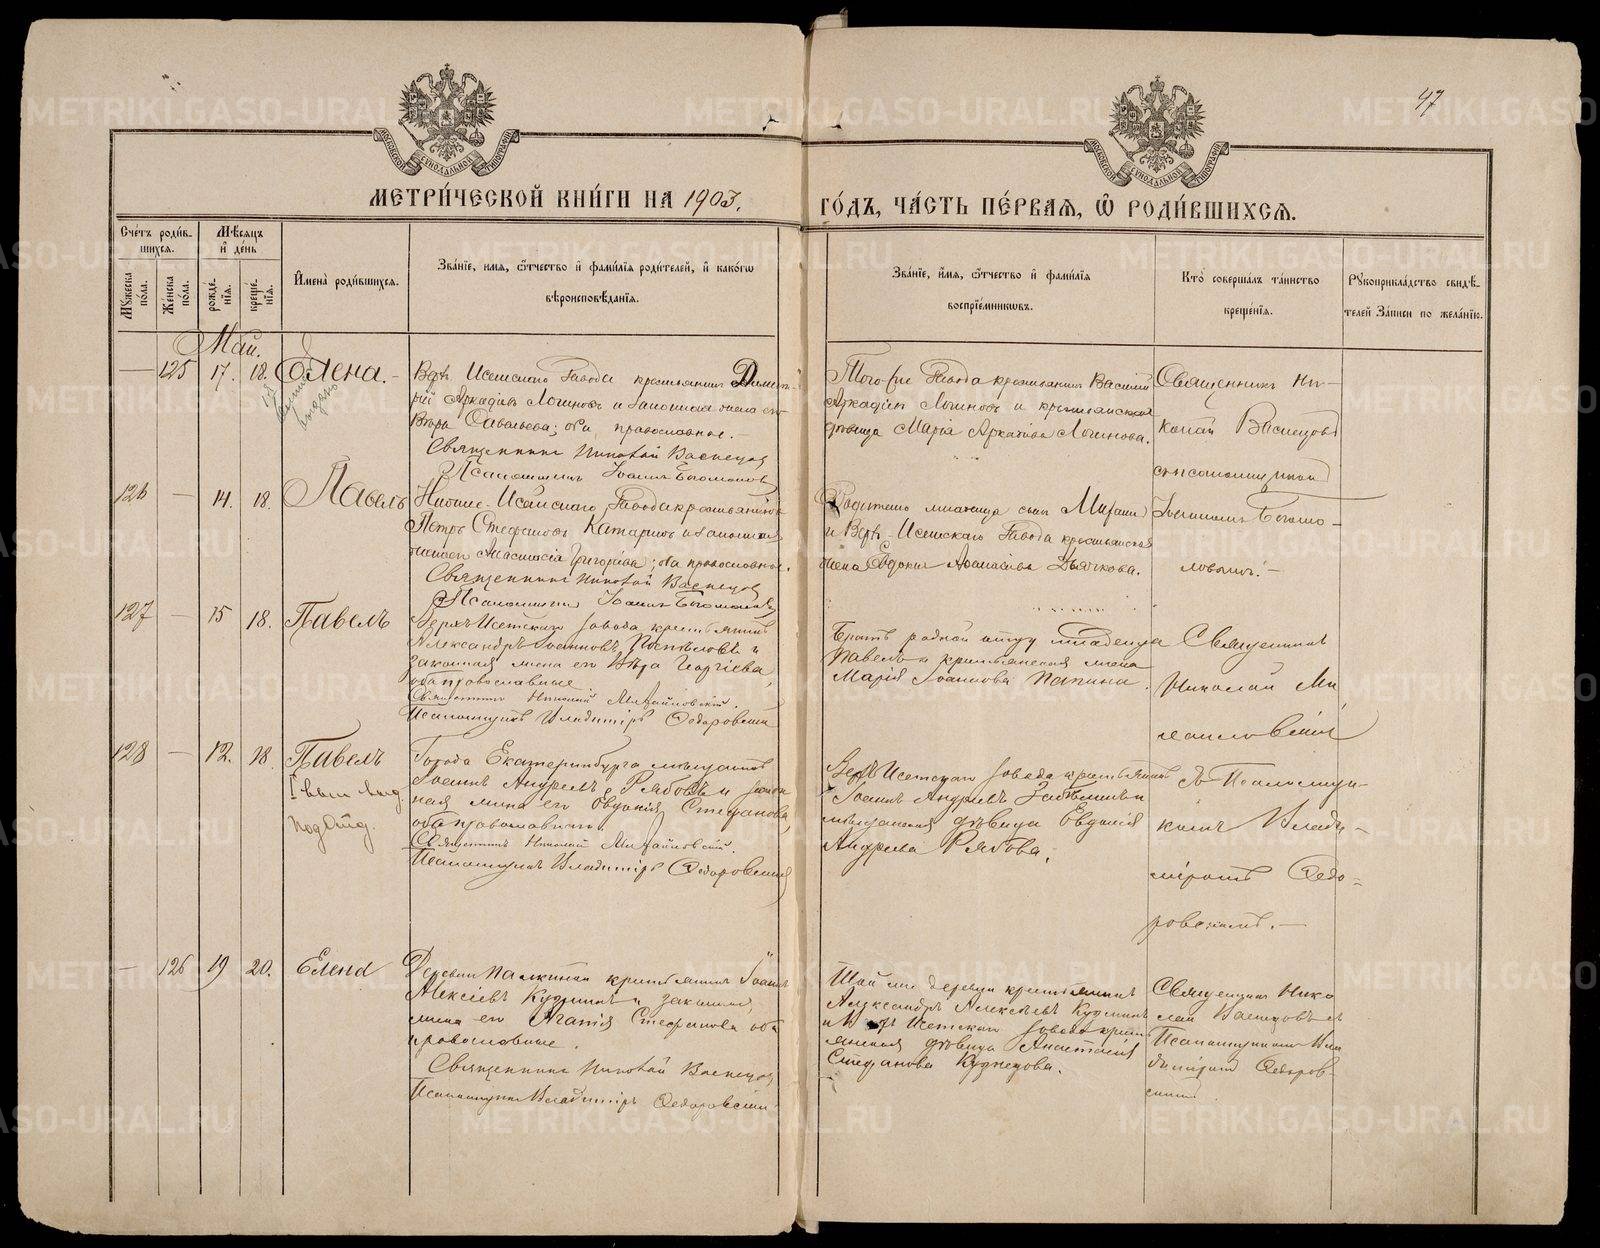 47
МОСКОВСКОЙ СѴНОДАЛЬНОЙ ТИПОГРАФІИ
МОСКОВСКОЙ СѴНОДАЛЬНОЙ ТИПОГРАФІИ
МЕТРИ́ЧЕСКОЙ КНИ́ГИ НА 1903.
ГО́ДЪ, ЧА́СТЬ ПЕ́РВАЯ, Ѽ РОДИ́ВШИХСЯ.
Сче́тъ роди́в-
шихся.
Мѣ́сяцъ
и҆ де́нь
Мꙋ́жеска
по́ла.
Же́нска
по́ла.
рожде́-
нїя.
креще́-
нїя.
И҆мена̀ роди́вшихся.
Зва́нїе, имя, ѻ҆́тчество и҆ фами́лїя роди́телей, и҆ како́гѡ
вѣроисповѣ́данїя.
Зва́нїе, и҆́мя, ѻ҆́тчество и҆ фами́лїя
воспрїе́мниковъ.
Кто̀ соверша́лъ та́инство
креще́нїя.
Рꙋкоприкла́дство свидѣ́-
телей За́писи по жела́нїю.
Май.
— 125 17. 18. Елена. —
Верхъ Исетскаго Завода крестьянинъ Димит-
рій Аркадіевъ Логиновъ и законная жена его
Вѣра Савельева; оба православные. —
Священникъ Николай Васнецов
Псаломщикъ Іоаннъ Богомолов
Того-же Завода крестьянинъ Василій
Аркадіевъ Логиновъ и крестьянская
дѣвица Марія Аркадіева Логинова.
Священникъ Ни-
колай Васнецовъ
съ псаломщикомъ
126 — 14. 18. Павелъ
Нижне-Исетскаго Завода крестьянинъ
Петръ Стефановъ и законная
жена его Анастасія Григорьева; оба православные.
Священникъ Николай Васнецов
Псаломщикъ Іоаннъ Богомолов
и Верх-Исетскаго Завода крестьянская
жена Евдокія Афанасіева Дьячкова.
Іоанномъ Богомо-
ловымъ. —
127 — 15 18. Павелъ
Верхъ Исетскаго завода крестьянинъ
Александръ Іоанновъ Поспѣловъ и
законная жена его Вѣра Георгіева,
оба православные
Священникъ Николай Михайловскій.
Псаломщикъ Владиміръ Федоровскій
Братъ родной отцу младенца
Павелъ и крестьянская жена
Марія Іоаннова Папина.
Священникъ
Николай Ми
хайловскій
128 — 12. 18. Павелъ
Города Екатеринбурга мѣщанинъ
Іоаннъ Андреевъ Рябовъ и закон
ная жена его Евдокія Стефанова,
оба православные.
Священникъ Николай Михайловскій.
Псаломщикъ Владиміръ Федоровскій
Верхъ Исетскаго завода крестьянинъ
Іоаннъ Андреевъ и
мѣщанская дѣвица Евдокія
Андреева Рябова.
съ Псаломщи-
комъ Влади-
міромъ Федо-
ровскимъ. —
— 126 19 20. Елена
Деревни Палкиной крестьянинъ Іоаннъ
Алексіевъ Кузминъ и законная
жена его Агафія Стефанова оба
православные.
Священникъ Николай Васнецов
Псаломщикъ Владиміръ Федоровскій
Той же деревни крестьянинъ
Александръ Алексѣевъ Кузминъ
и Верхъ Исетскаго завода крестья
янская дѣвица Анастасія
Стефанова Кузнецова.
Священникъ Нико
лай Васнецовъ съ
Псаломщикомъ Вла
диміромъ Федоров-
скимъ
METRIKI.GASO-URAL.RU